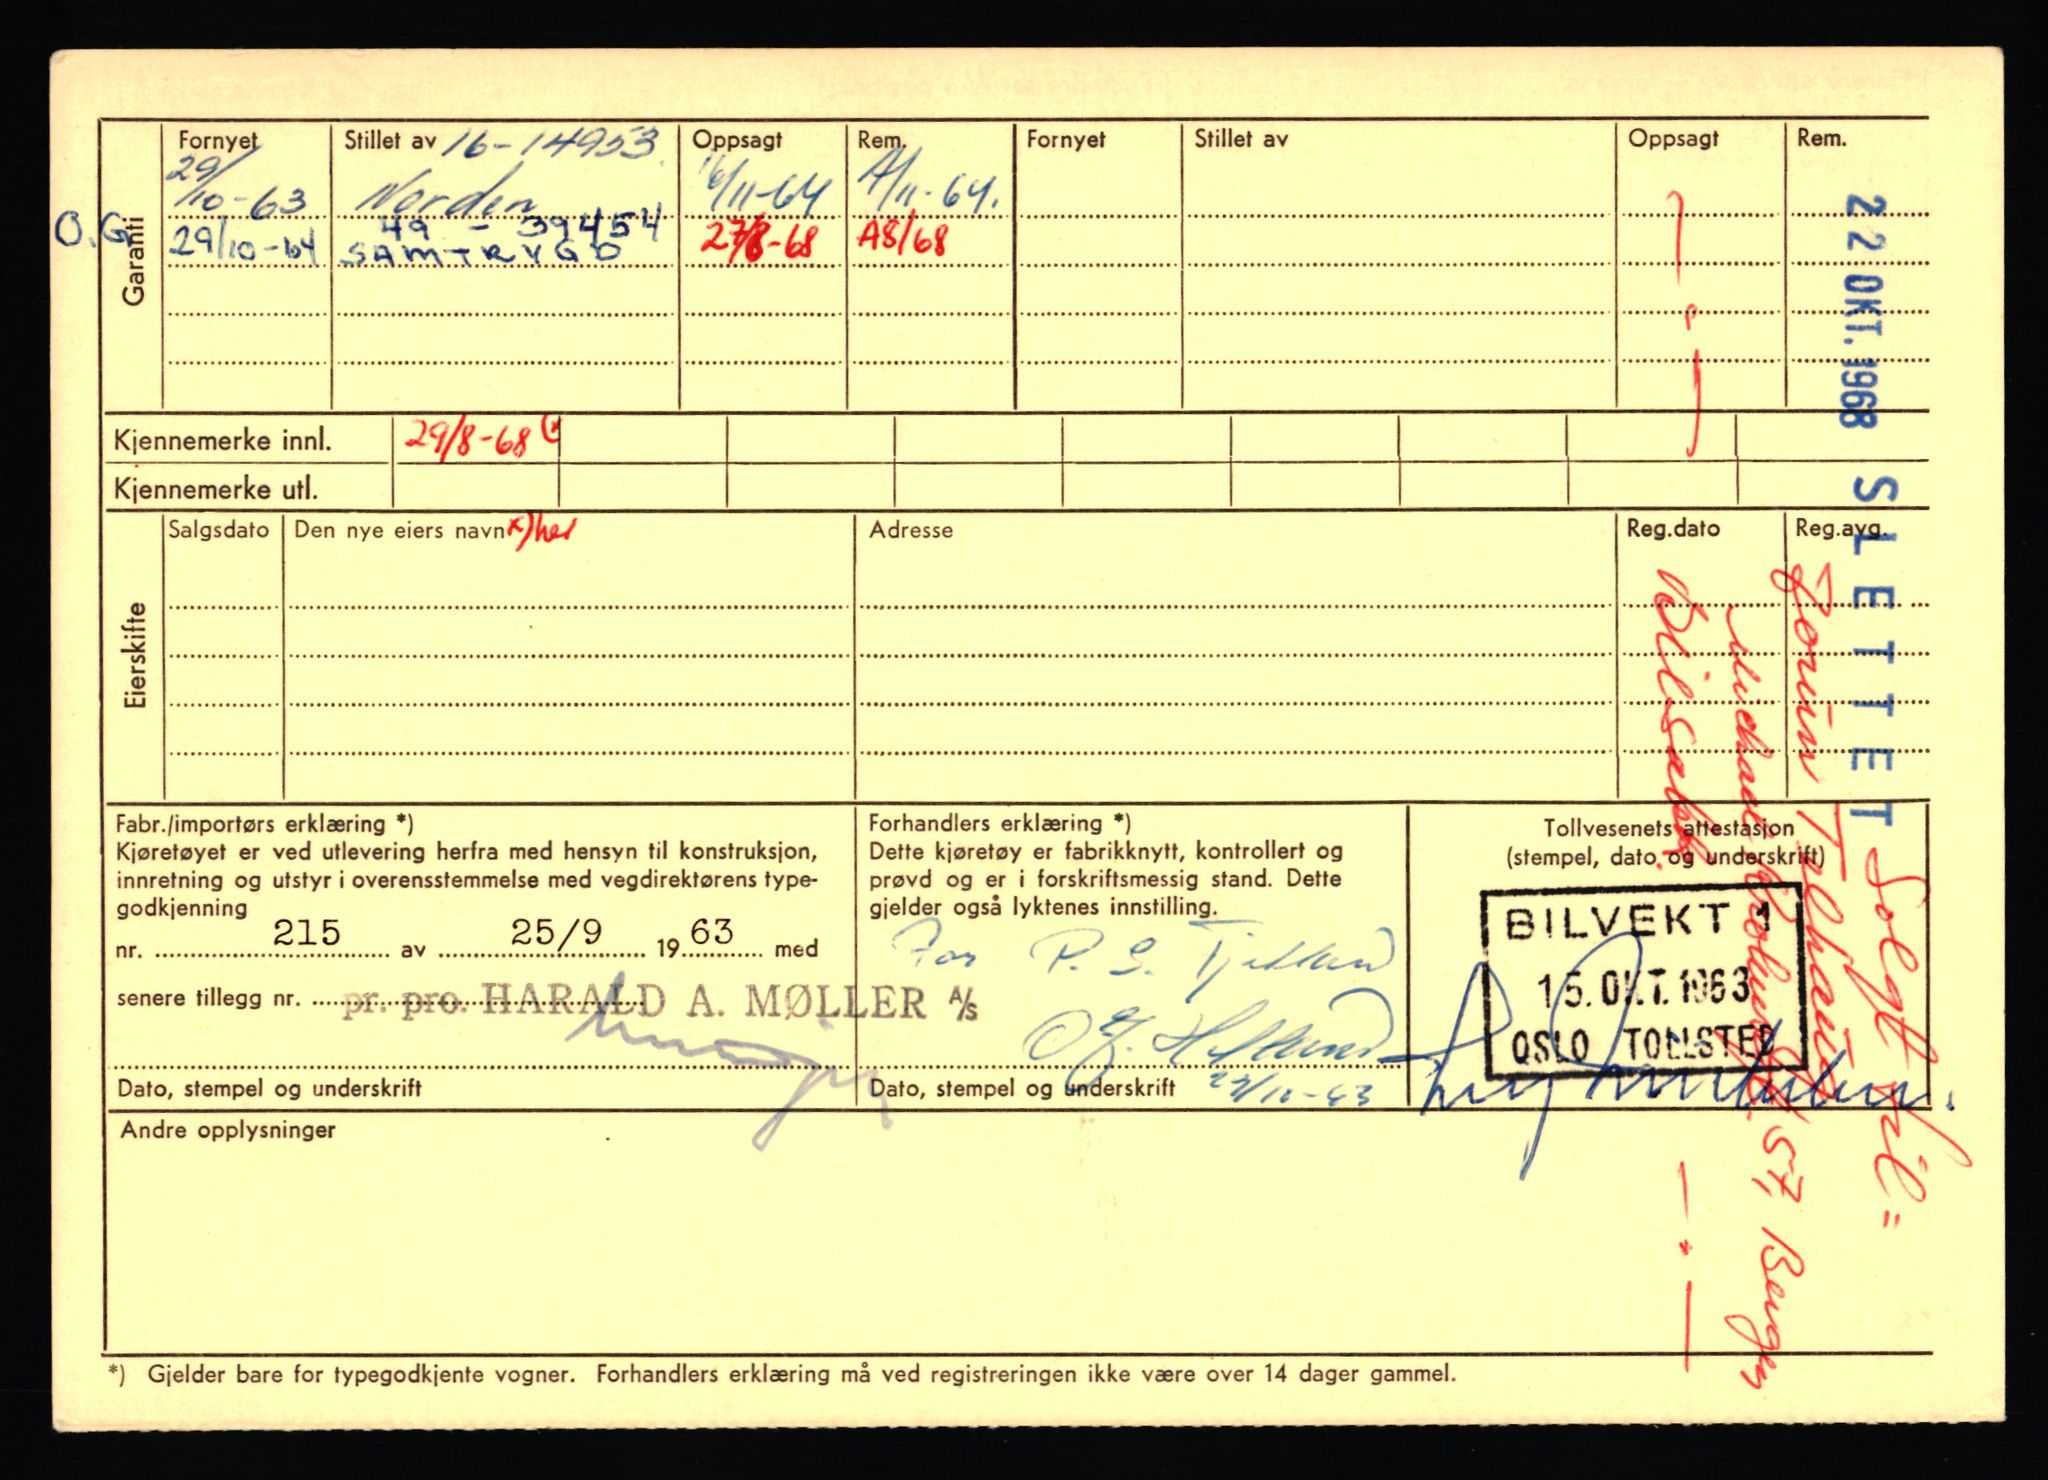 Garanti
Fornyet Stillet av 16-14953 Oppsagt Rem. Fornyet Stillet av Oppsagt Rem.
29/10-63 Norden 16/11-64 A/11-64.
O.G. 29/10-64 49 - 39454 27/8-68 A8/68
SAMTRYGD
Kjennemerke innl. 29/8-68 (x
Kjennemerke utl.
Eierskifte
Salgsdato Den nye eiers navn x) her Adresse Reg.dato Reg.avg.
Fabr./importørs erklæring *)
Kjøretøyet er ved utlevering herfra med hensyn til konstruksjon,
innretning og utstyr i overensstemmelse med vegdirektørens type-
godkjenning
nr. 215 av 25/9 1963 med
senere tillegg nr.
pr. pro. HARALD A. MØLLER A/S
Dato, stempel og underskrift
Forhandlers erklæring *)
Dette kjøretøy er fabrikknytt, kontrollert og
prøvd og er i forskriftsmessig stand. Dette
gjelder også lyktenes innstilling.
For P. G. Tjelland
Dato, stempel og underskrift
Tollvesenets attestasjon
(stempel, dato og underskrift)
BILVEKT 1
15. OKT. 1963
OSLO TOLLSTED
Andre opplysninger
*) Gjelder bare for typegodkjente vogner. Forhandlers erklæring må ved registreringen ikke være over 14 dager gammel.
22 OKT. 1968 SLETTET
Solgt til =
57, Bergen